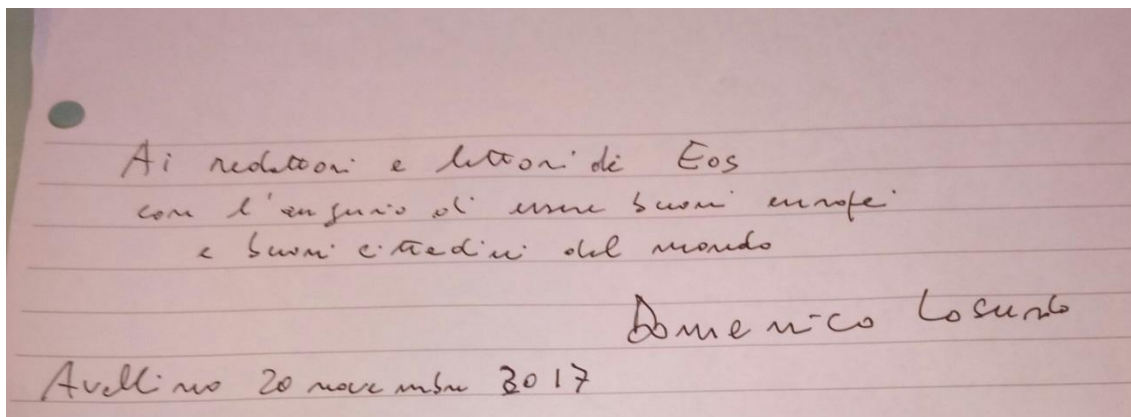 Ai redattori e lettori di Eos
con l'augurio di essere buoni europei
e buoni cittadini del mondo
Domenico Losurdo
Avellino 20 novembre 3017